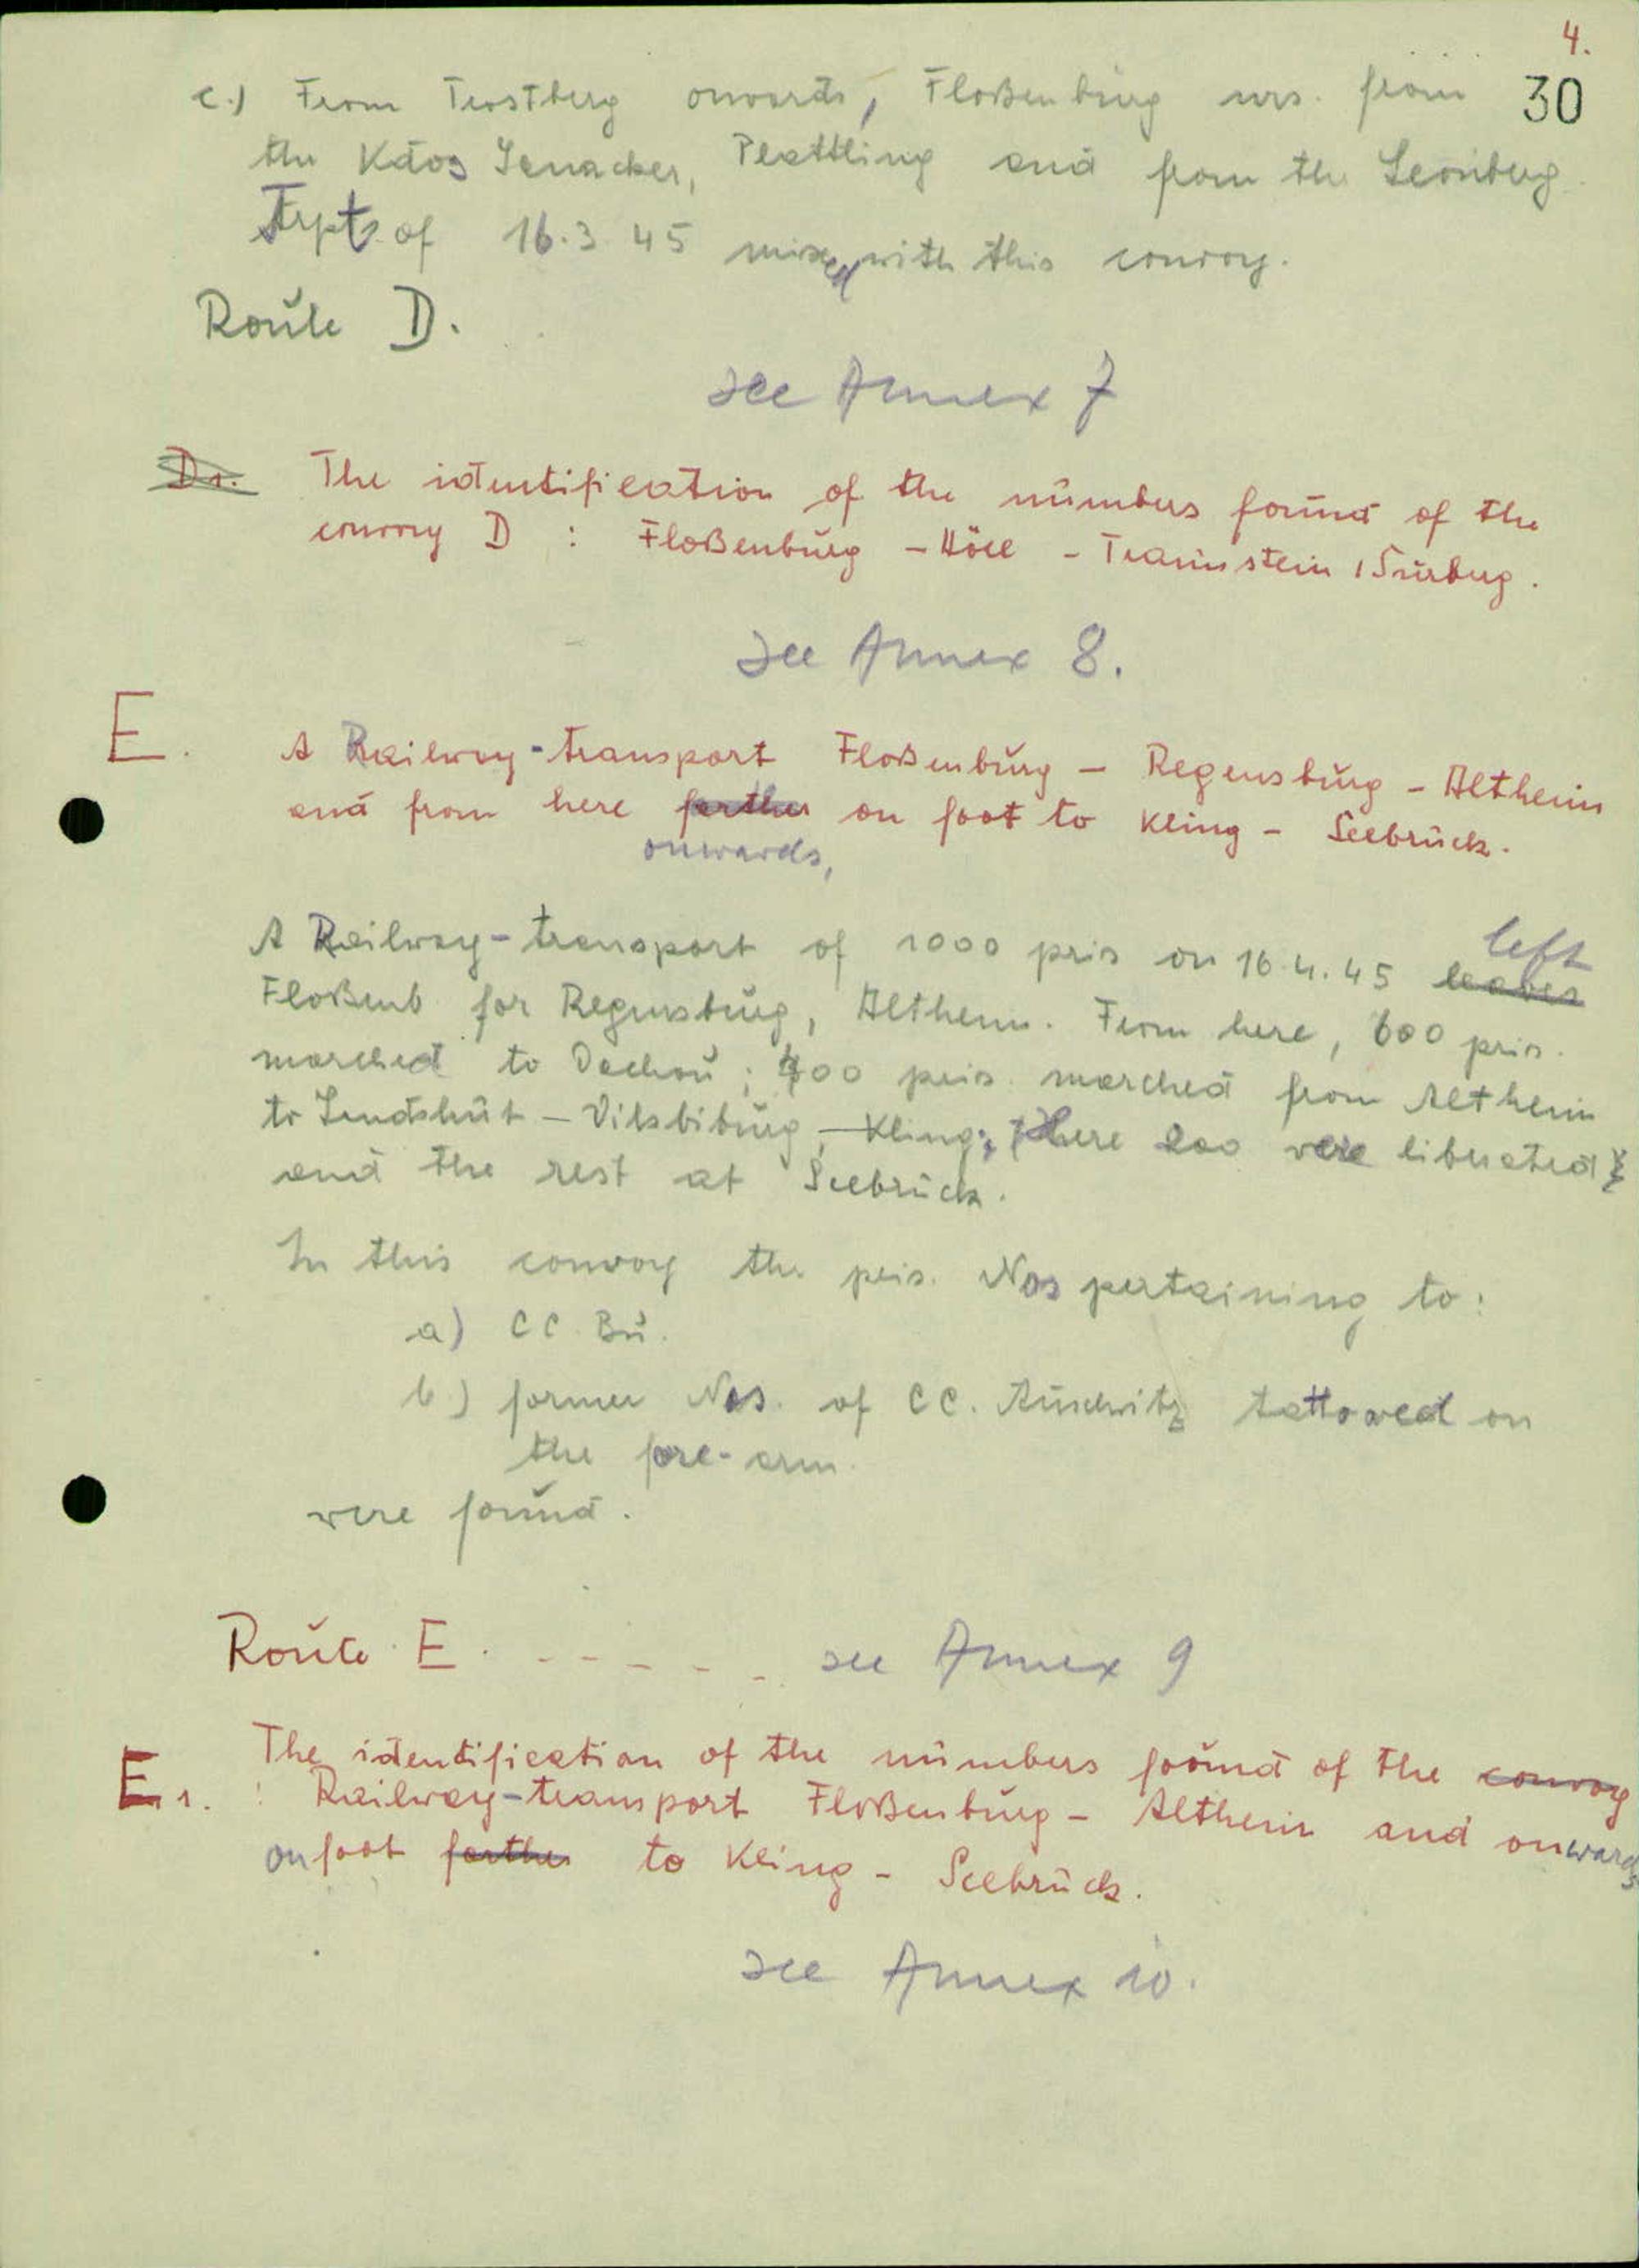 4.
30
c.) From Trostberg onwards, Floßenbürg nrs. from
the Kdos Ganacker, Plattling and from the Leonberg
Trpts. of 16.3.45 mixed with this convoy.
Route D.
see Annex 7
D1. The identification of the numbers found of the
convoy D : Floßenbürg - Höll - Traunstein / Surberg.
see Annex 8.
E. A Railway-transport Floßenbürg - Regensburg - Altheim
and from here farther on foot to Kling - Seebruck.
onwards,
A Railway-transport of 1000 pris on 16.4.45 leaves left
Floßenb. for Regensburg, Altheim. From here, 600 pris.
marched to Dachau; 400 pris. marched from Altheim
to Landshut - Vilsbiburg, - Kling; there 200 were liberated
and the rest at Seebruck.
In this convoy the pris. Nos pertaining to:
a) CC. Bu.
b) former Nos. of CC. Auschwitz tattowed on
the fore-arm.
were found.
Route E. - - - - - - see Annex 9
E1. The identification of the numbers found of the convoy
: Railway-transport Floßenbürg - Altheim and onwards
on foot farther to Kling - Seebruck.
see Annex 10.